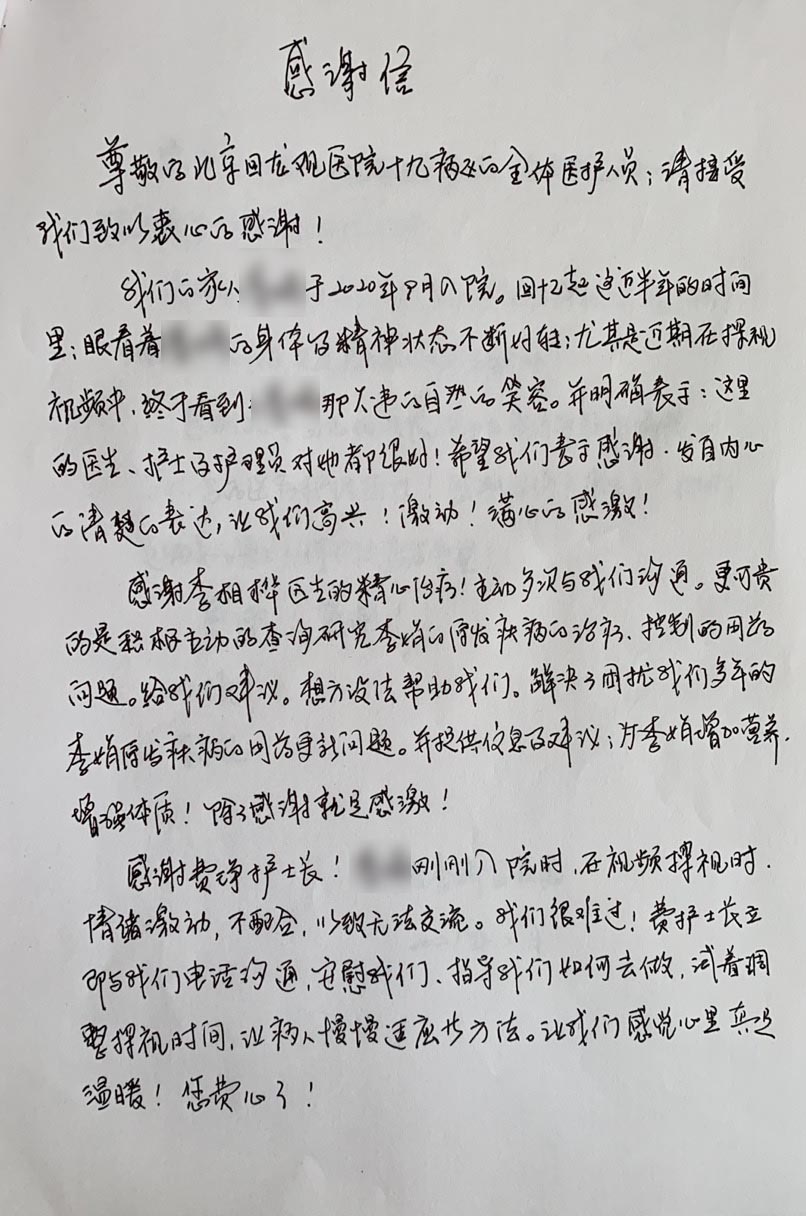 感谢信
尊敬的北京回龙观医院十九病区的全体医护人员；请接受
我们致以衷心的感谢！
我们的家人于2020年9月入院。回忆起这近半年的时间
里；眼看着的身体的精神状态不断好转；尤其是近期在探视
视频中、终于看到那久违的自然的笑容。并明确表示：这里
的医生、护士及护理员对她都很好！希望我们表示感谢．发自内心
的清楚的表达，让我们高兴！激动！满心的感激！
感谢李相桦医生的精心治疗！主动多次与我们沟通。更可贵
的是积极主动的查询研究李娟的原发疾病的治疗、控制的用药
问题。给我们建议。想方设法帮助我们。解决了困扰我们多年的
李娟原发疾病的用药更新问题。并提供信息及建议；为李娟增加营养．
增强体质！除了感谢就是感激！
感谢费静护士长！刚刚入院时，在视频探视时．
情绪激动，不配合，以致无法交流。我们很难过！费护士长立
即与我们电话沟通，安慰我们、指导我们如何去做，试着调
整探视时间，让病人慢慢适应等方法。让我们感觉心里真是
温暖！您费心了！